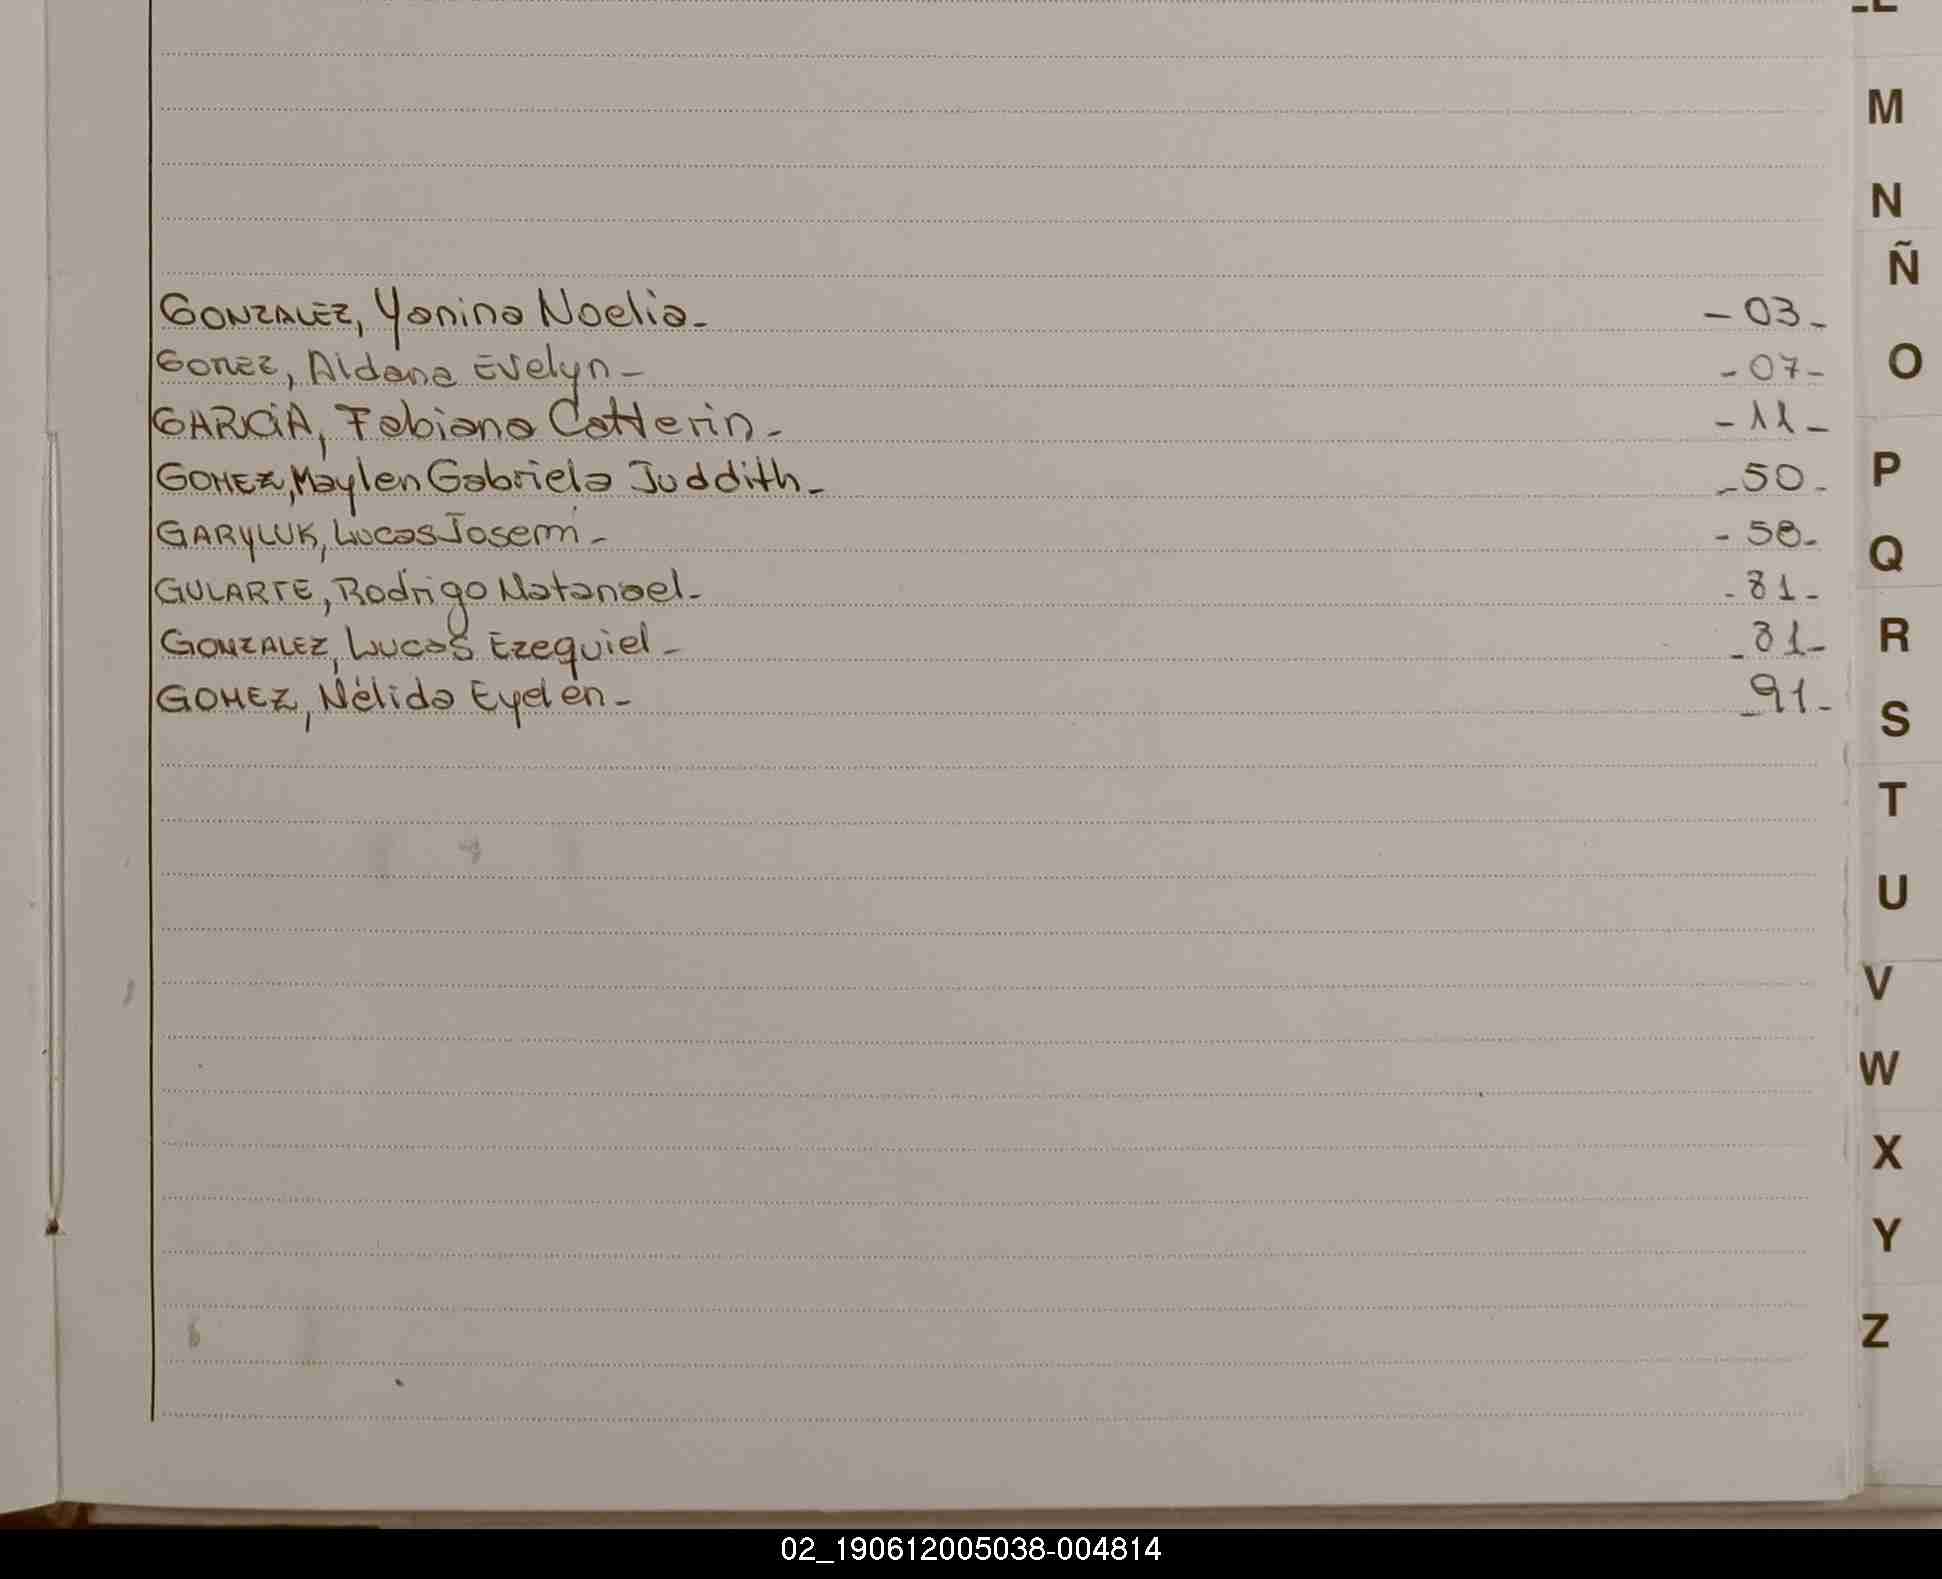 LL
M
N
Ñ
GONZALEZ, Yanina Noelia. - 03 -
O
GOMEZ, Aldana Evelyn - - 07 -
GARCIA, Fabiana Catterin - - 11 -
P
GOMEZ, Maylen Gabriela Juddith - - 50 -
GARYLUK, Lucas Josemi - - 58 -
Q
GULARTE, Rodrigo Natanael - - 81 -
R
GONZALEZ, Lucas Ezequiel - - 81 -
GOMEZ, Nélida Eyelén - - 91 -
S
T
U
V
W
X
Y
Z
02_190612005038-004814